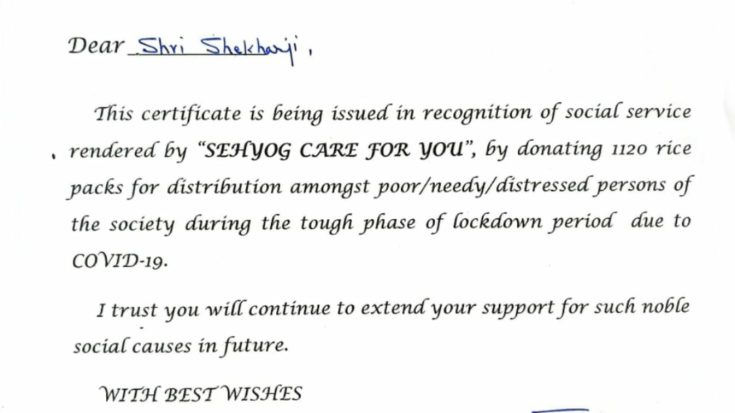 Dear Shri Shekharji,
This certificate is being issued in recognition of social service
rendered by "SEHYOG CARE FOR YOU", by donating 1120 rice
packs for distribution amongst poor/needy/distressed persons of
the society during the tough phase of lockdown period due to
COVID-19.
I trust you will continue to extend your support for such noble
social causes in future.
WITH BEST WISHES